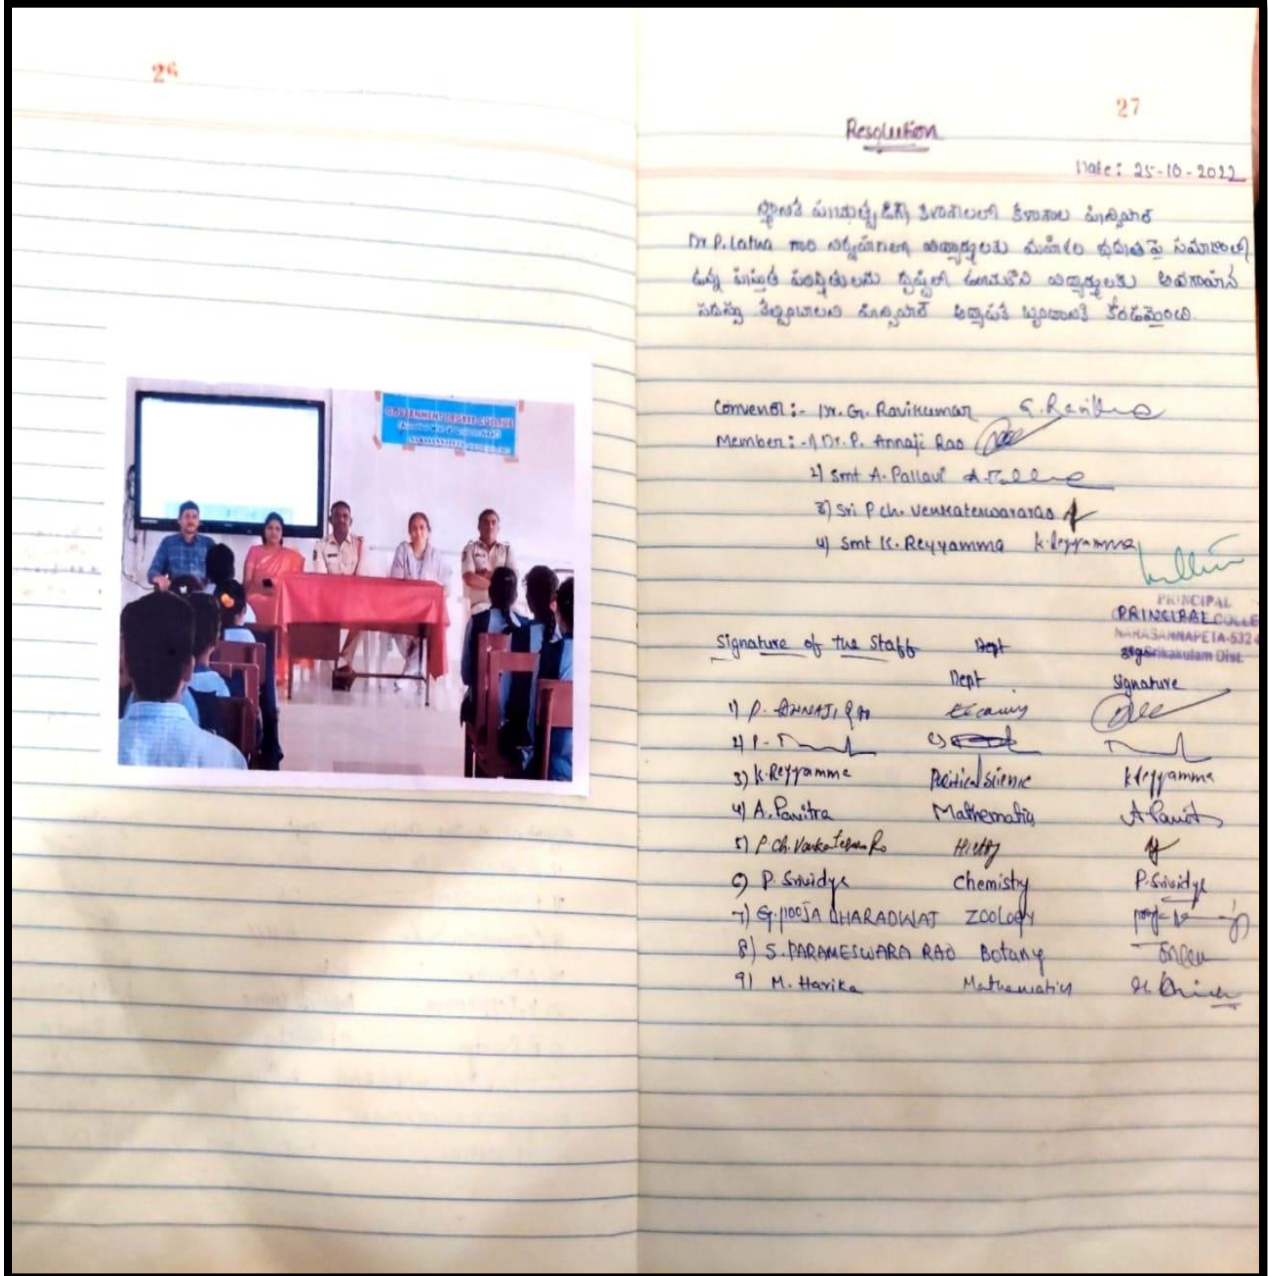 26
GOVERNMENT DEGREE COLLEGE
27
Resolution
Date: 25-10-2022
స్థానిక ప్రభుత్వ డిగ్రీ కళాశాలలో కళాశాల ప్రిన్సిపాల్
Dr P. Latha గారి విద్యార్థులకు మహిళల భద్రతపై సమాజంలో
ఉన్న పరిస్థితులను దృష్టిలో ఉంచుకొని విద్యార్థులకు అవగాహన
సదస్సు ప్రిన్సిపాల్ అధ్యాపక
Convenor:- Dr. G. Ravikumar G. Ravi
Member:- 1) Dr. P. Annaji Rao
2) Smt A. Pallavi A. Pallavi
3) Sri P ch. Venkateswararao
4) Smt K. Reyyamma K. Reyyamma
PRINCIPAL
PRINCIPAL COLLE
NARASANNAPETA-532
Srikakulam Dist.
Signature of the Staff Dept
Dept Signature
1) P. ANNAJI
2) P.
3) K. Reyyamma Political Science K Reyyamma
4) A. Pavitra Mathematics A. Pavitra
5) P. Ch. Venkateswara Rao History
6) P. Srividya Chemistry P. Srividya
7) G. POOJA BHARADWAJ ZOOLOGY
8) S. PARAMESWARA RAO Botany
9) M. Harika Mathematics